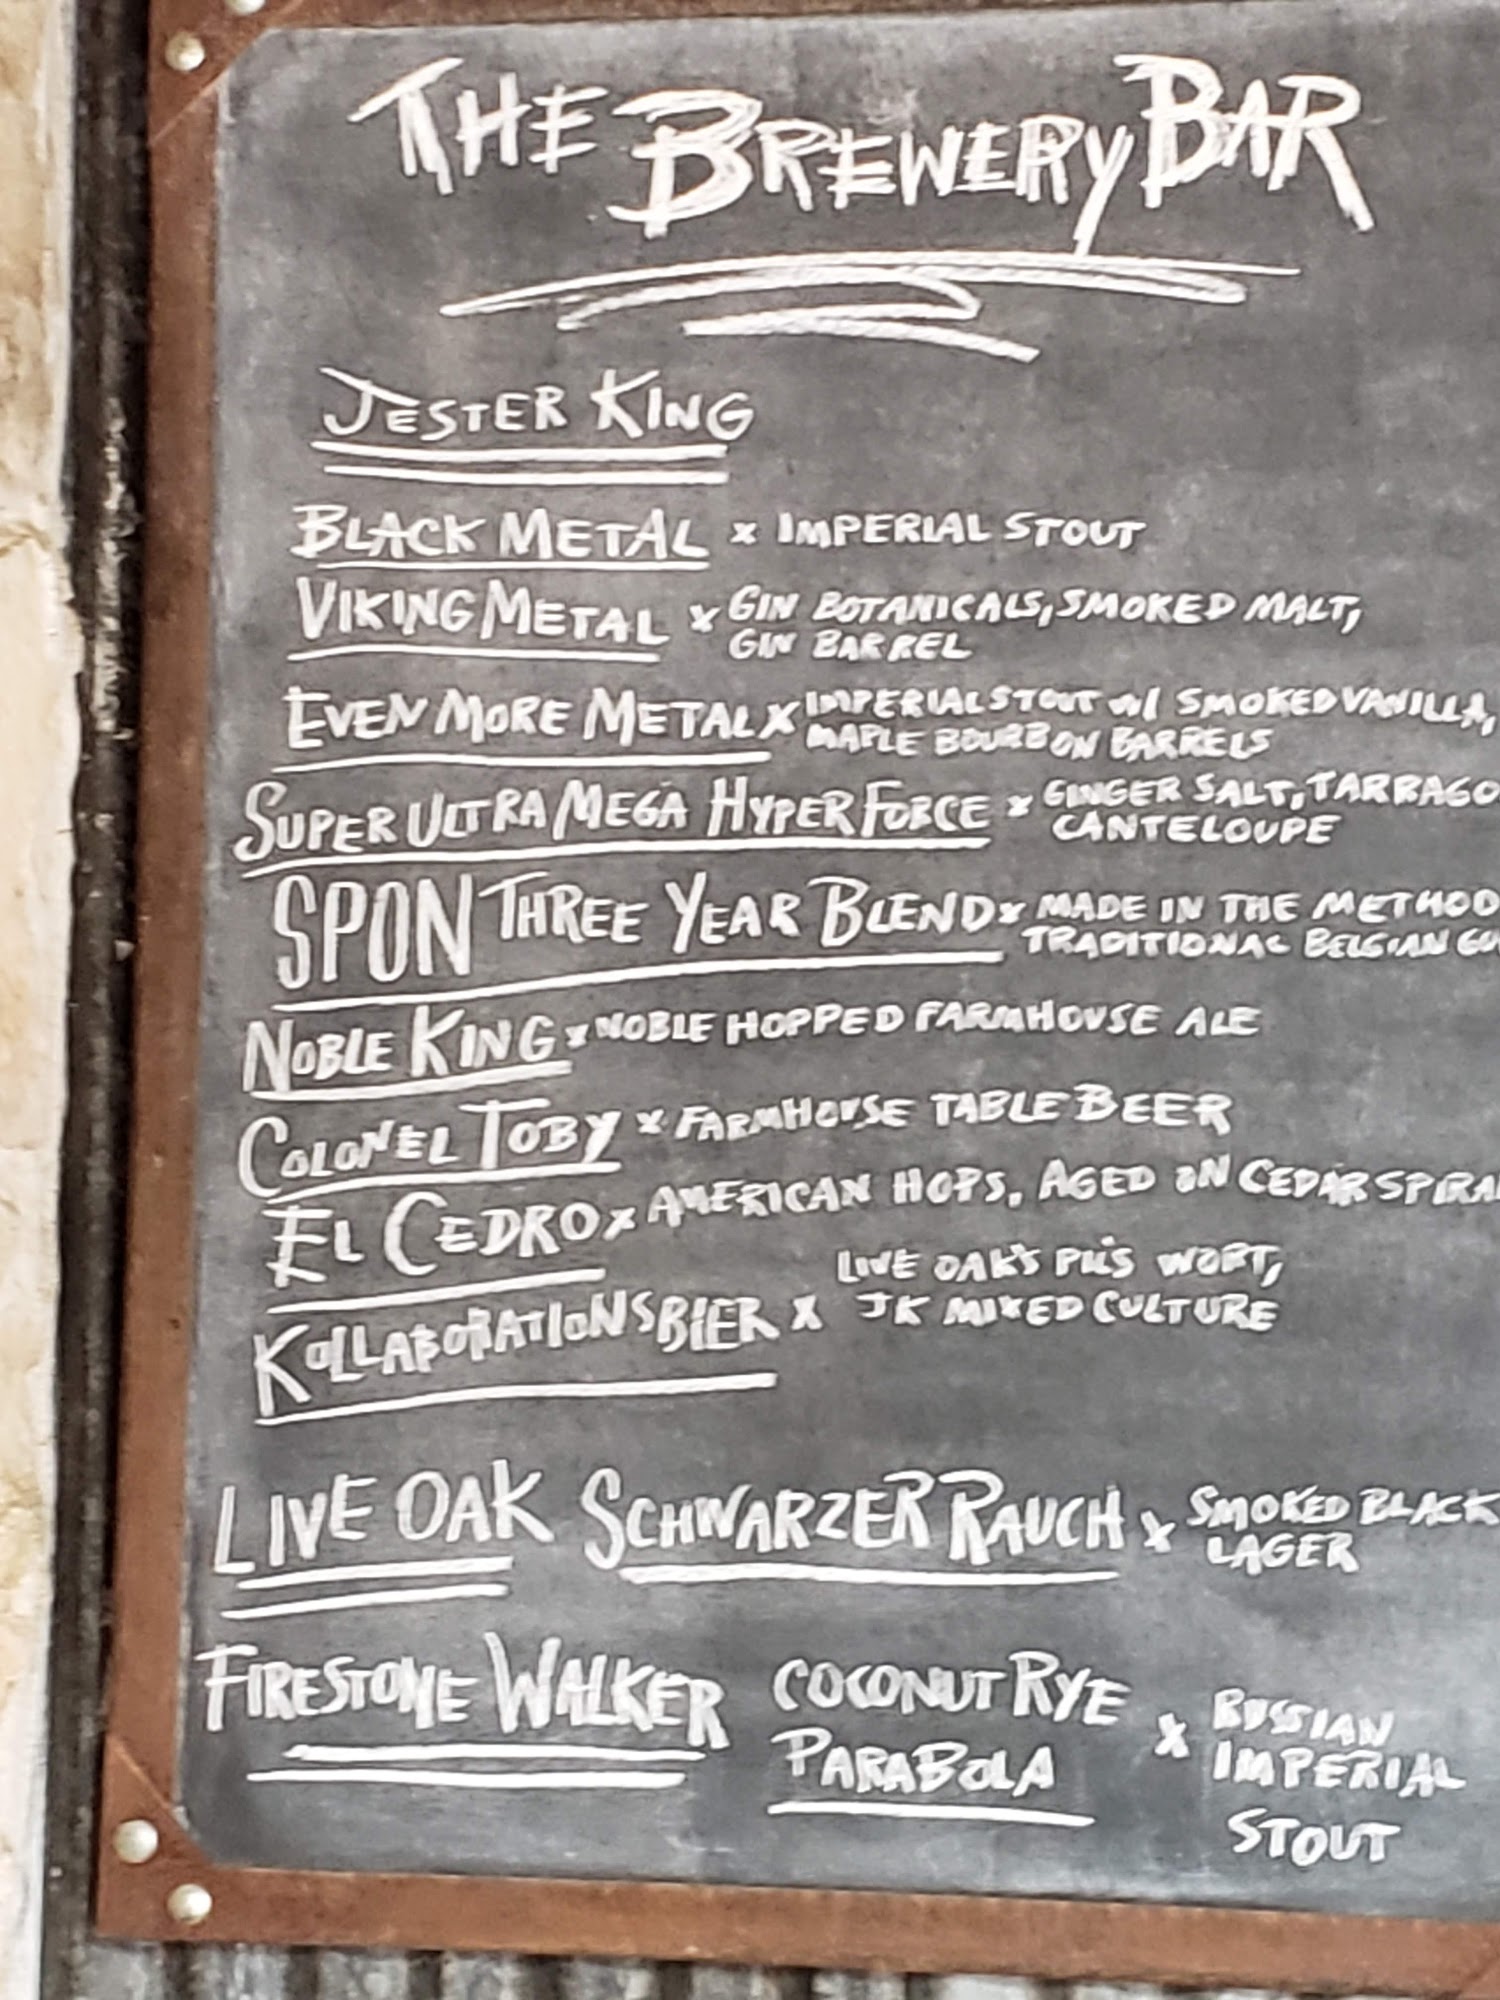 THE BREWERY BAR
JESTER KING
BLACK METAL x IMPERIAL STOUT
VIKING METAL x GIN BOTANICALS, SMOKED MALT,
GIN BARREL
EVEN MORE METAL x IMPERIAL STOUT w/ SMOKED VANILLA,
MAPLE BOURBON BARRELS
SUPER ULTRA MEGA HYPER FORCE x GINGER SALT, TARRAGO
CANTELOUPE
SPON THREE YEAR BLEND x MADE IN THE METHOD
TRADITIONAL BELGIAN GU
NOBLE KING x NOBLE HOPPED FARMHOUSE ALE
COLONEL TOBY x FARMHOUSE TABLE BEER
EL CEDRO x AMERICAN HOPS, AGED ON CEDAR SPIRA
LIVE OAK'S PILS WORT,
KOLLABORATIONSBIER x JK MIXED CULTURE
LIVE OAK SCHWARZER RAUCH x SMOKED BLACK
LAGER
FIRESTONE WALKER COCONUT RYE
PARABOLA x RUSSIAN
IMPERIAL
STOUT